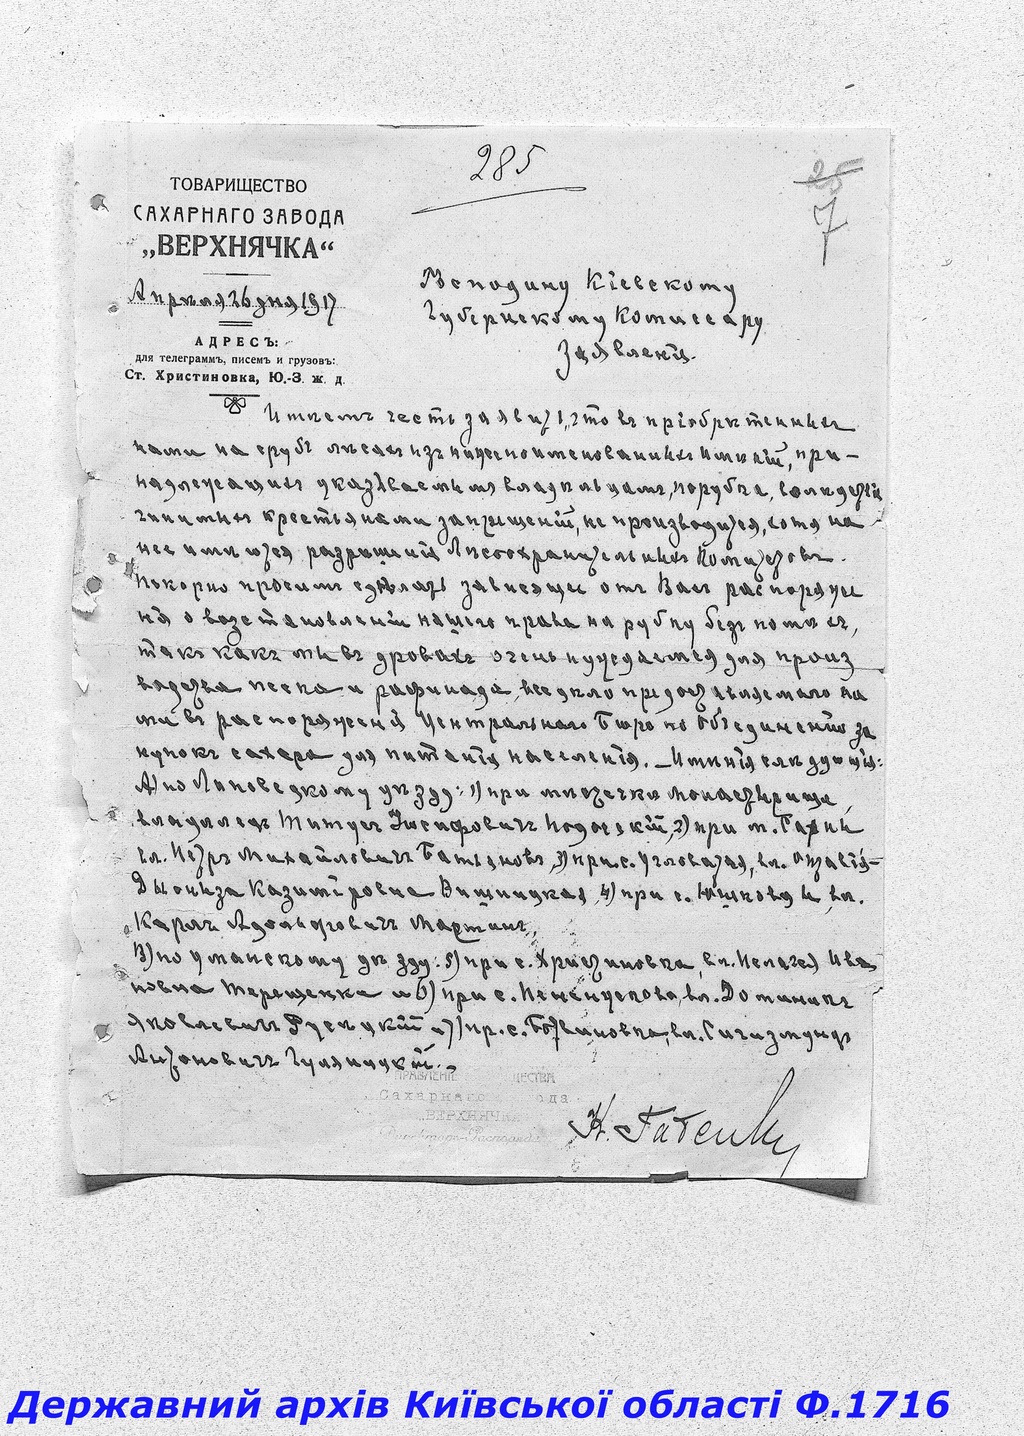 285
25
7
ТОВАРИЩЕСТВО
САХАРНАГО ЗАВОДА
„ВЕРХНЯЧКА“
Апрѣля 26 дня 1917
АДРЕСЪ:
для телеграммъ, писемъ и грузовъ:
Ст. Христиновка, Ю.-З. ж. д.
Господину Кіевскому
Губернскому Комиссару
Заявленіе.
Имѣемъ честь заявить, что въ пріобрѣтенныхъ
нами на срубъ лѣсахъ изъ нижепоименованныхъ имѣній, при-
надлежащихъ указываемымъ владѣльцамъ, порубка, вслѣдствіе
чинимыхъ крестьянами запрещеній, не производится, хотя на
нее имѣются разрѣшенія Лѣсоохранительныхъ Комитетовъ.
Покорно просимъ сдѣлать зависящее отъ Васъ распоряже
нія о возстановленіи нашего права на рубку безъ помѣхъ,
такъ какъ мы въ дровахъ очень нуждаемся для произ
водства песка и рафинада, всецѣло предоставляемаго на
ми въ распоряженіе Центральнаго Бюро по Объединенію за
купокъ сахара для питанія населенія. Имѣнія слѣдующія:
А) по Липовецкому уѣзду: 1) при мѣстечкѣ Монастырище,
владѣлецъ Титусъ Іосифовичъ Подоскій, 2) при м.
вл. Петръ Михайловичъ Батьяновъ, 3) при с. Угловатая, вл.
Діониза Казиміровна Вишницкая, 4) при с. Юшковцы, вл.
Карлъ Адольфовичъ Мартинъ,
В) по Уманскому уѣзду: 5) при с. Христиновка, вл. Пелагея Ива
новна Терещенко и 6) при с. вл. Доминикъ
Яковлевичъ и 7) пр. с. вл. Сигизмундъ
Антоновичъ Гуляницкій.
ПРАВЛЕНІЕ ТОВАРИЩЕСТВА
Сахарнаго Завода
„ВЕРХНЯЧКА“
Державний архів Київської області Ф.1716